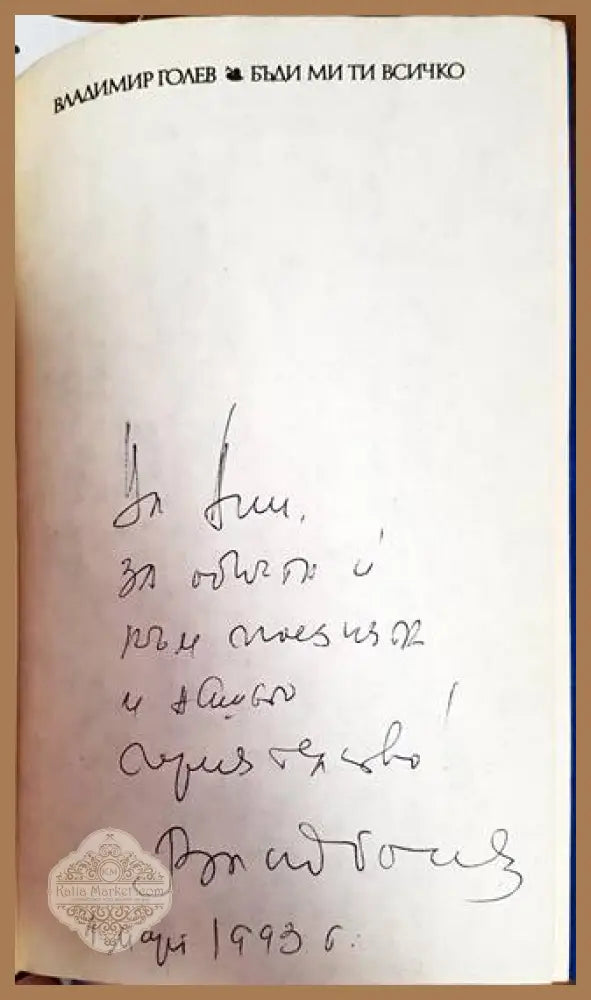 ВЛАДИМИР ГОЛЕВ БЪДИ МИ ТИ ВСИЧКО
На Ани,
за обичта ѝ
към поезията
и нашето
приятелство!
Влад Голев
март 1993 г.
KM
Kalia Market.com